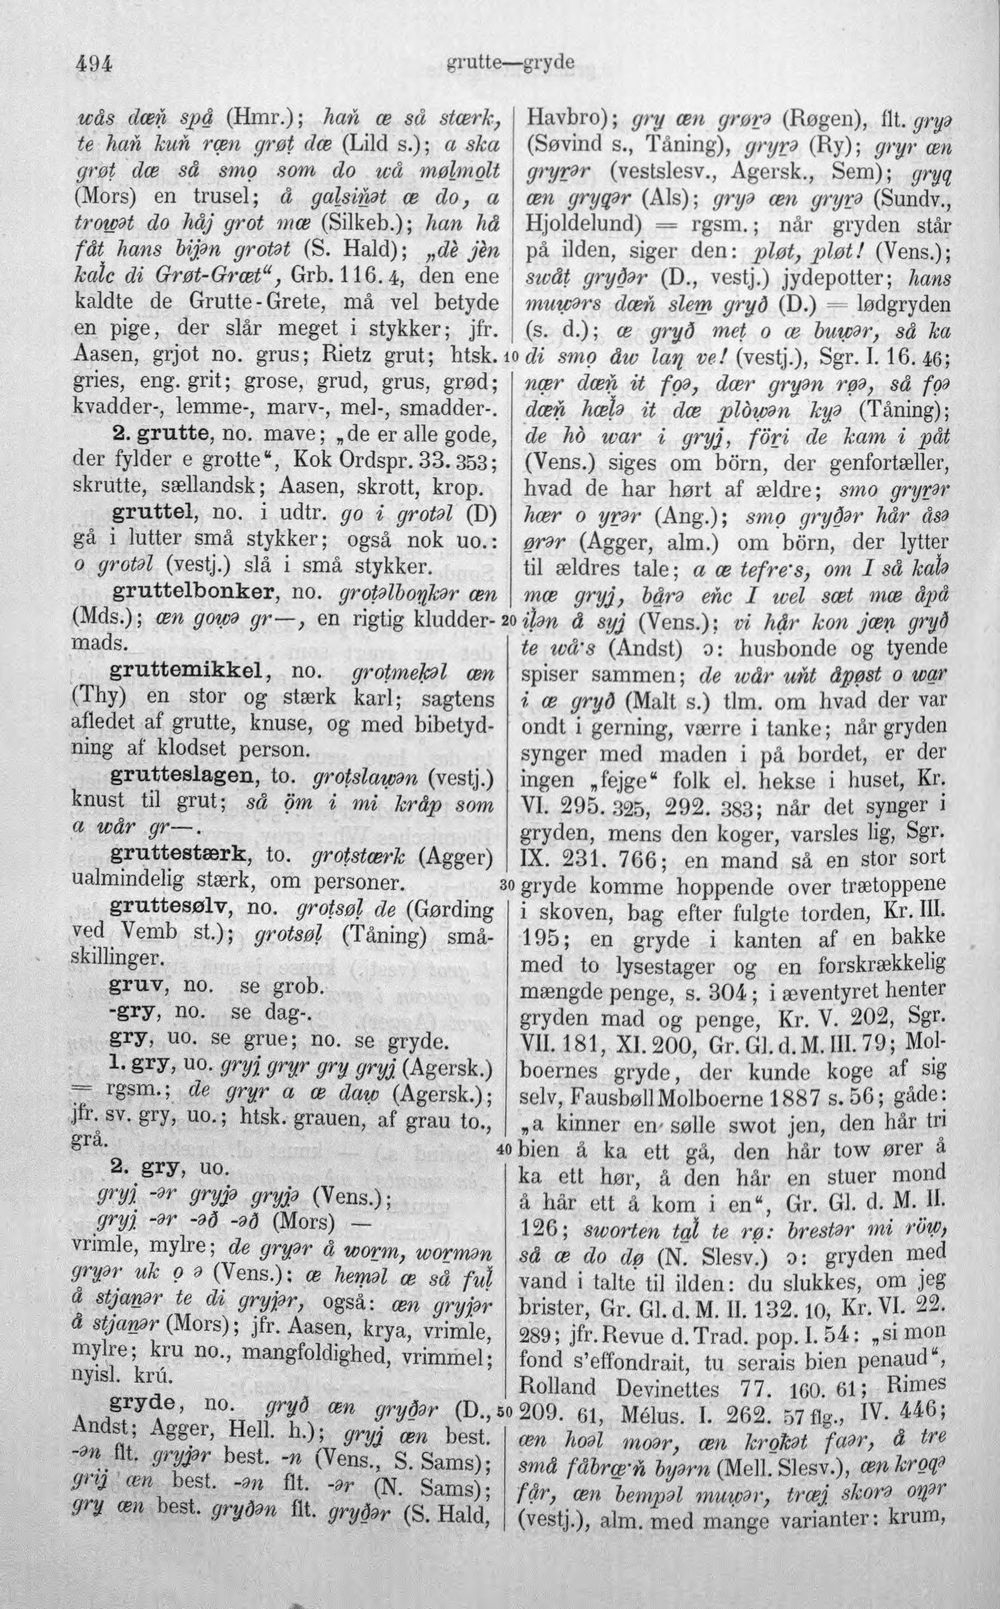 494
grutte—gryde
wås dæń spå̱ (Hmr.); hań æ så stærk,
te hań kuń ræn grøt dæ (Lild s.); a ska
grøt dæ så smo̱ som do wå mølmo̱lt
(Mors) en trusel; å galsińət æ do, a
trowət do håj grot mæ (Silkeb.); han hå
fåt hans bijən grotət (S. Hald); „dè jèn
kalc di Grøt-Græt“, Grb. 116. 4, den ene
kaldte de Grutte-Grete, må vel betyde
en pige, der slår meget i stykker; jfr.
Aasen, grjot no. grus; Rietz grut; htsk.
gries, eng. grit; grose, grud, grus, grød;
kvadder-, lemme-, marv-, mel-, smadder-.
2. grutte, no. mave; „de er alle gode,
der fylder e grotte“, Kok Ordspr. 33. 353;
skrutte, sællandsk; Aasen, skrott, krop.
gruttel, no. i udtr. go i grotəl (D)
gå i lutter små stykker; også nok uo.:
o grotəl (vestj.) slå i små stykker.
gruttelbonker, no. grotəlboŋkər æn
(Mds.); æn gowə gr—, en rigtig kludder-
mads.
gruttemikkel, no. grotmekəl æn
(Thy) en stor og stærk karl; sagtens
afledet af grutte, knuse, og med bibetyd-
ning af klodset person.
grutteslagen, to. grotslawən (vestj.)
knust til grut; så öm i mi kråp som
a wår gr—.
gruttestærk, to. grotstærk (Agger)
ualmindelig stærk, om personer.
gruttesølv, no. grotsøl de (Gørding
ved Vemb st.); grotsøl (Tåning) små-
skillinger.
gruv, no. se grob.
-gry, no. se dag-.
gry, uo. se grue; no. se gryde.
1. gry, uo. gryj gryr gry gryj (Agersk.)
= rgsm.; de gryr a æ daw (Agersk.);
jfr. sv. gry, uo.; htsk. grauen, af grau to.,
grå.
2. gry, uo.
gryj -ər gryjə gryjə (Vens.);
gryj -ər -əð -əð (Mors) —
vrimle, mylre; de gryər å worm, wormən
gryər uk o ə (Vens.); æ heməl æ så ful
å stjanər te di gryjər, også: æn gryjər
å stjanər (Mors); jfr. Aasen, krya, vrimle,
mylre; kru no., mangfoldighed, vrimmel;
nyisl. krú.
gryde, no. gryð æn gryðər (D.,
Andst; Agger, Hell. h.); gryj æn best.
-ən flt. gryjər best. -n (Vens., S. Sams);
grij æn best. -ən flt. -ər (N. Sams);
gry æn best. gryðən flt. gryðər (S. Hald,
Havbro); gry æn grørə (Røgen), flt. gryə
(Søvind s., Tåning), gryrə (Ry); gryr æn
gryrər (vestslesv., Agersk., Sem); gryq
æn gryqər (Als); gryə æn gryrə (Sundv.,
Hjoldelund) = rgsm.; når gryden står
på ilden, siger den: pløt, pløt! (Vens.);
swåt gryðər (D., vestj.) jydepotter; hans
muwərs dæń slem gryð (D.) = lødgryden
(s. d.); æ gryð met o æ buwər, så ka
10 di smo åw laŋ ve! (vestj.), Sgr. I. 16. 46;
nær dæń it foə, dær gryən røə, så foə
dæń hælə it dæ plòwən kyə (Tåning);
de hò war i gryj, föri de kam i påt
(Vens.) siges om börn, der genfortæller,
hvad de har hørt af ældre; smo gryrər
hær o yrər (Ang.); smo gryðər hår åsə
ørər (Agger, alm.) om börn, der lytter
til ældres tale; a æ tefre's, om I så kalə
mæ gryj, bårə eńc I wel sæt mæ åpå
20 ilən å syj (Vens.); vi hår kon jæn gryð
te wå's (Andst) ɔ: husbonde og tyende
spiser sammen; de wår uńt åpøst o war
i æ gryð (Malt s.) tlm. om hvad der var
ondt i gerning, værre i tanke; når gryden
synger med maden i på bordet, er der
ingen „fejge“ folk el. hekse i huset, Kr.
VI. 295. 325, 292. 383; når det synger i
gryden, mens den koger, varsles lig, Sgr.
IX. 231. 766; en mand så en stor sort
30 gryde komme hoppende over trætoppene
i skoven, bag efter fulgte torden, Kr. III.
195; en gryde i kanten af en bakke
med to lysestager og en forskrækkelig
mængde penge, s. 304; i æventyret henter
gryden mad og penge, Kr. V. 202, Sgr.
VII. 181, XI. 200, Gr. Gl. d. M. III. 79; Mol-
boernes gryde, der kunde koge af sig
selv, Fausbøll Molboerne 1887 s. 56; gåde:
„a kinner en sølle swot jen, den hår tri
40 bien å ka ett gå, den hår tow ører å
ka ett hør, å den hår en stuer mond
å hår ett å kom i en“, Gr. Gl. d. M. II.
126; sworten tal te rø: brestər mi röw,
så æ do dø (N. Slesv.) ɔ: gryden med
vand i talte til ilden: du slukkes, om jeg
brister, Gr. Gl. d. M. II. 132. 10, Kr. VI. 22.
289; jfr. Revue d. Trad. pop. I. 54: „si mon
fond s'effondrait, tu serais bien penaud“,
Rolland Devinettes 77. 160. 61; Rimes
50 209. 61, Mélus. I. 262. 57 flg., IV. 446;
æn hoəl moər, æn krokət faər, å tre
små fåbræ'ń byərn (Mell. Slesv.), æn kroqə
får, æn bempəl muwər, træj skorə oŋər
(vestj.), alm. med mange varianter: krum,